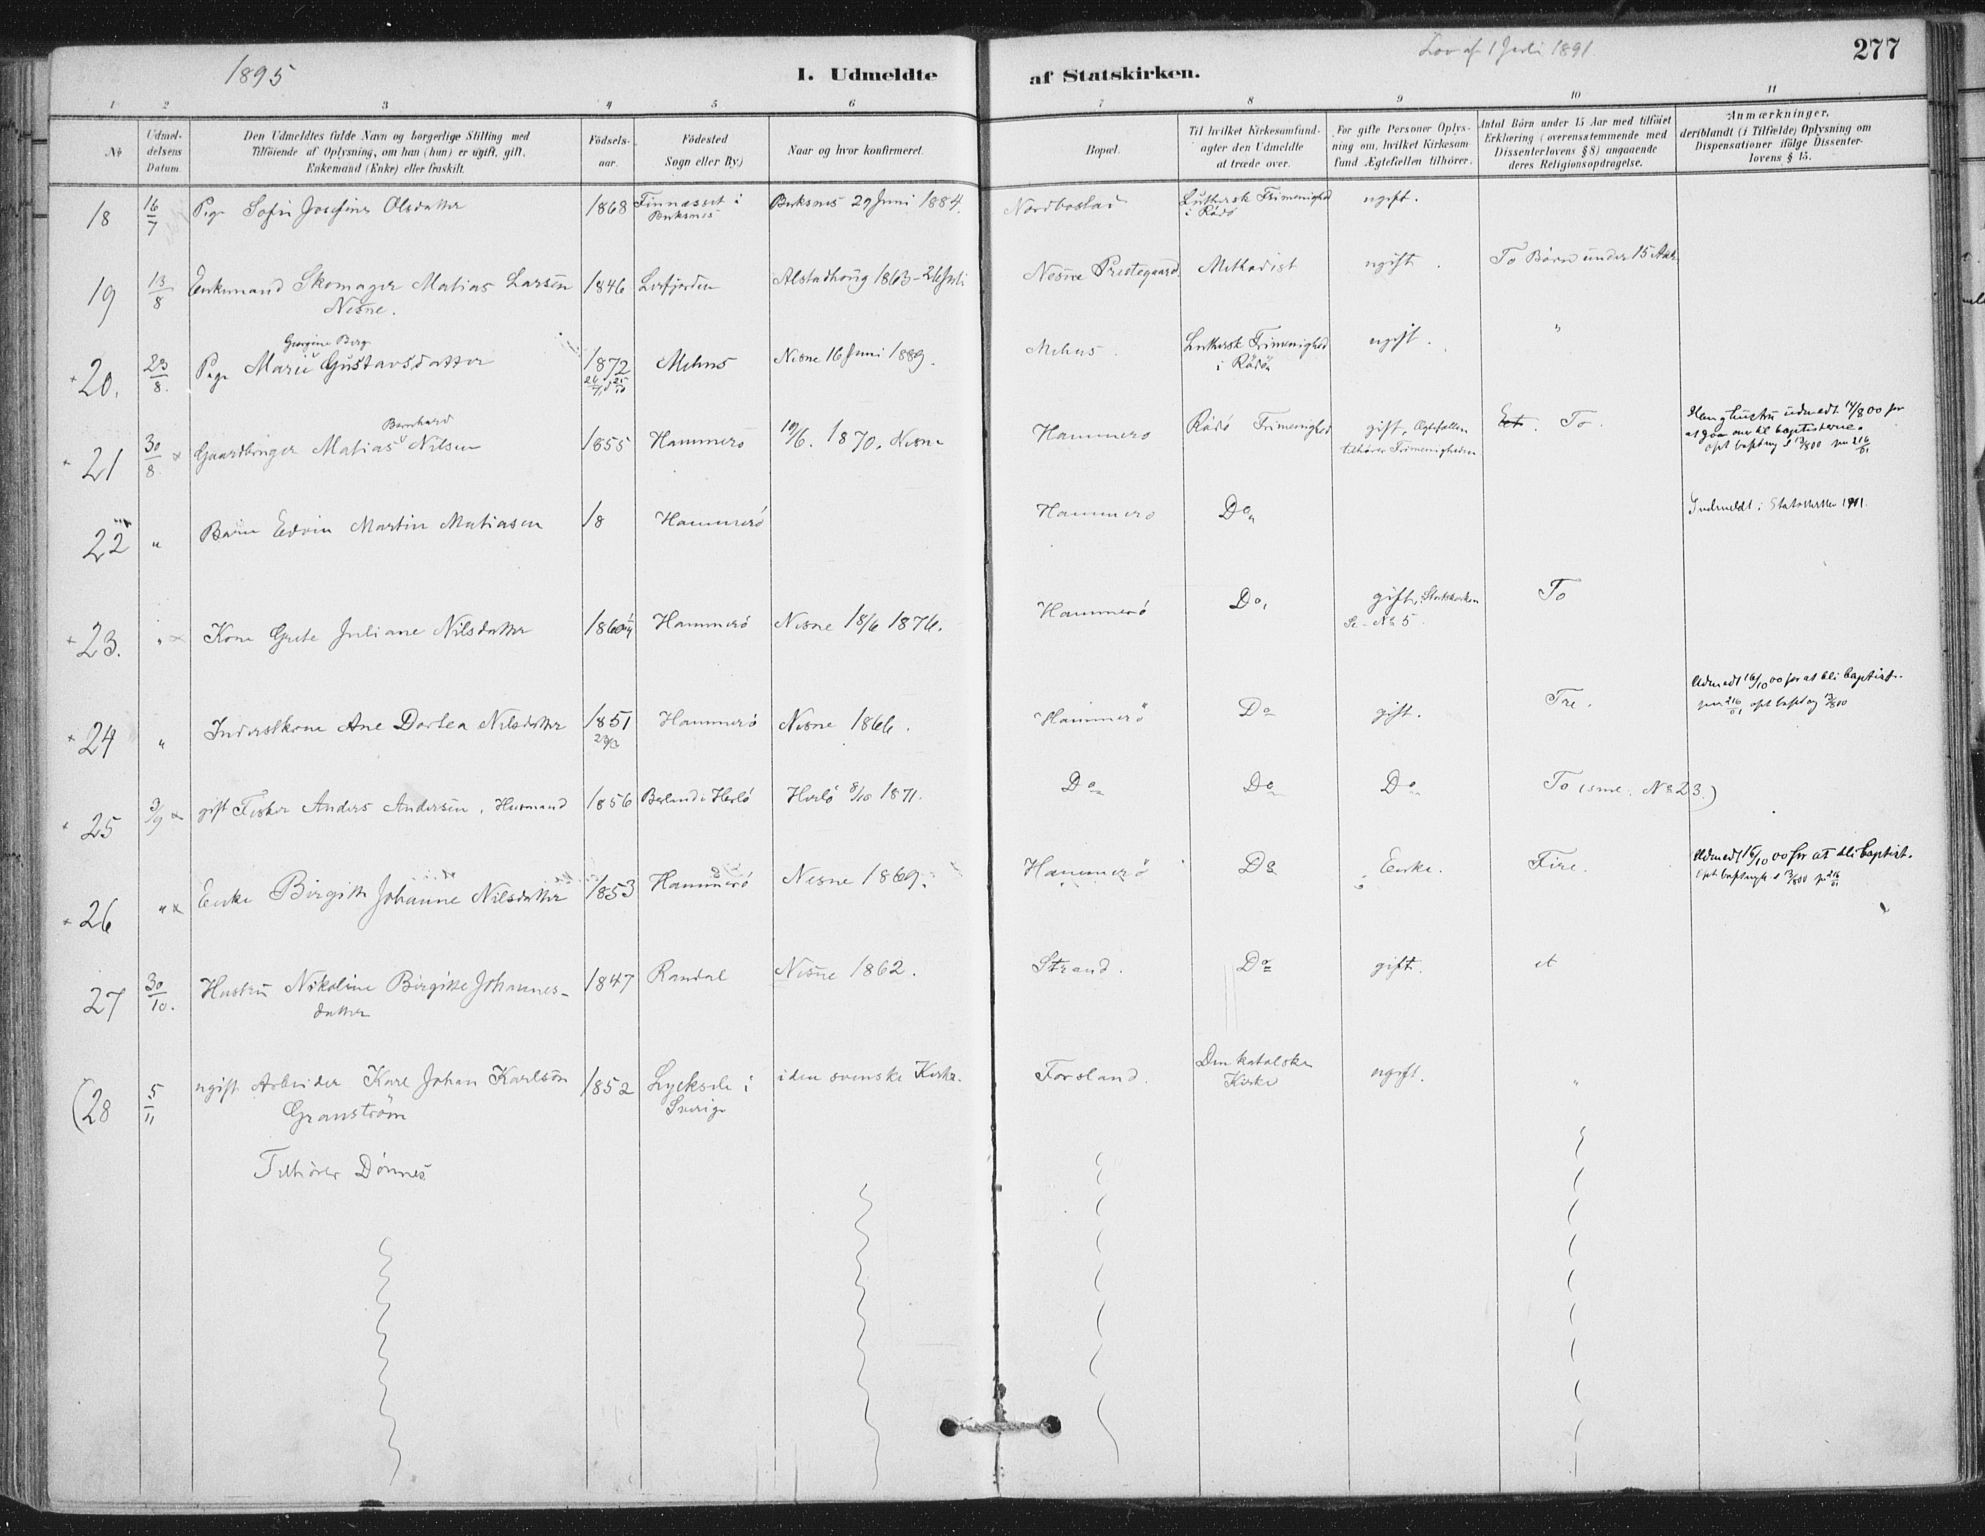 1895
I. Udmeldte af Statskirken.
Lov af 1 Juli 1891
277
1 2 3 4 5 6 7 8 9 10 11
No
Udmeldelsens Datum.
Den Udmeldtes fulde Navn og borgerlige Stilling med
Tilföiende af Oplysning, om han (hun) er ugift, gift,
Enkemand (Enke) eller fraskilt.
Födselsaar.
Födested
Sogn eller By.)
Naar og hvor konfirmeret.
Bopæl.
Til hvilket Kirkesamfund
agter den Udmeldte
at træde over.
For gifte Personer Oplysning om, hvilket Kirkesamfund Ægtefællen tilhörer.
Antal Börn under 15 Aar med tilföiet
Erklæring (overensstemmende med
Dissenterlovens § 8) angaaende
deres Religionsopdragelse.
Anmærkninger,
deriblandt (i Tilfælde) Oplysning om
Dispensationer ifölge Dissenterlovens § 15.
18 16/7 Pige Sofie Josefine Olsdatter 1868 Finnæsset i Buksnes Buksnes 29 Juni 1884. Nordbostad Luthersk Frimenighed i Rödö ugift.
19 13/8 Enkemand Skomager Matias Larsen Nesne. 1846 Leirfjorden Alstadhoug 1863 - 26 Juli Nesne Prestegaard Methodist ugift. To Börn under 15 Aar
20. 23/8. Pige Marie Georgine Berg Gustavsdatter 1872 Mehus Nesne 16 Juni 1889. Mehus Luthersk Frimenighed i Rödö ugift. "
21 30/8 Gaardbruger Matias Bernhard Nilsen 1855 Hammerö 19/6. 1870. Nesne Hammerö Rödö Frimenighed gift, Ægtefællen tilhörer Frimenigheden Et. To. Han & hustru udmeldt 14/8 00 for at gaa over til baptisterne.
22 " Barn Edvin Martin Matiasen 18 Hammerö Hammerö Do Indmeldt i Statskirken 1911.
23. " Kone Grete Juliane Nilsdatter 1860 Hammerö Nesne 18/6 1876. Hammerö Do, gift, Statskirken Se No 5 To
24 " Inderstkone Ane Dortea Nilsdatter 1851 Hammerö Nesne 1866. Hammerö Do gift. Tre. Udmeldt 16/10 00 for at bli baptist.
25 3/9 gift Fisker Anders Andersen, Husmand 1856 Herlö Herlö 8/10 1871. Do Do Do To (sml. No 23.)
26 " Enke Birgitte Johanne Nilsdatter 1853 Hammerö Nesne 1869. Hammerö Do Enke. Fire. Udmeldt 16/10 00 for at bli baptist.
27 30/10. Hustru Nikoline Birgitte Johannesdatter 1847 Randal Nesne 1862. Strand. Do gift. et
(28 5/11 ugift Arbeider Karl Johan Karlsön Granström 1852 Lycksele i Sverige i den svenske Kirke. Forsland. Den katolske Kirke ugift. "
Tilhörer Dönnes